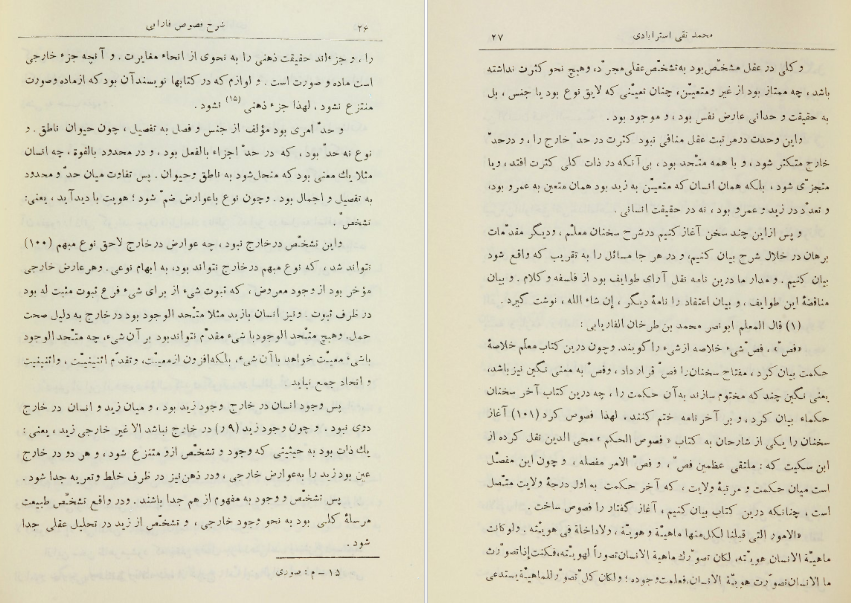 ۲۶
شرح فصوص فارابی
را ، و جزءاند حقیقت ذهنی را به نحوی از انحاء مغایرت . و آنچه جزء خارجی
است ماده و صورت است . و لوازم که در کتابها نویسند آن بود که از ماده وصورت
منتزع شود . لهذا جزء ذهنی (۱۵) نشود .
و حدّ امری بود مؤلف از جنس و فصل به تفصیل ، چون حیوان ناطق . و
نوع نه حدّ بود ، که در حدّ اجزاء بالفعل بود . و در محدود بالقوة ، چه انسان
مثلا یك معنی بود که منحل شود به ناطق وحیوان . پس تفاوت میان حدّ و محدود
به تفصیل و اجمال بود . وچون نوع باعوارض ضمّ شود ؛ هویت با دید آید ، یعنی:
تشخص .
واین تشخّص در خارج نبود ، چه عوارض در خارج لاحق نوع مبهم (۱۰۰)
نتواند شد ، که نوع مبهم در خارج نتواند بود، به ابهام نوعی . وهر عارض خارجی
مؤخر بود از وجود معروض ، که ثبوت شیء از برای شیء فرع ثبوت مثبت له بود
در ظرف ثبوت . ونیز انسان با زید مثلا متّحد الوجود بود در خارج به دلیل صحت
حمل. وهیچ متّحد الوجود با شیء مقدّم نتواند بود بر آن شیء، چه متّحد الوجود
باشیء معیّت خواهد با آن شیء ، بلکه افزون از معیّت، وتقدّم اثنینیّت ، واثنینیت
و اتحاد جمع نیاید .
پس وجود انسان در خارج وجود زید بود . و میان زید و انسان در خارج
دوی نبود . و چون وجود زید (۹ ر) در خارج نباشد الا غیر خارجی زید ، یعنی :
یك ذات بود به حیثیتی که وجود و تشخّص از و منتزع شود ، و هر دو در خارج
عین بود زید را به عوارض خارجی ، ودر ذهن نیز در ظرف خلط وتعریه جدا شود .
پس تشخّص و وجود به مفهوم از هم جدا باشند . ودر واقع تشخّص طبیعت
مرسلهٔ کلّی بود به نحو وجود خارجی ، و تشخّص از زید در تحلیل عقلی جدا
شود .
۱۵ – م : صوری
محمد تقی استرابادی
۲۷
و کلی در عقل مشخّص بود به تشخّص عقلی مجرّد، وهیچ نحو کثرت نداشته
باشد ، چه ممتاز بود از غیر ومتعیّن، چنان تعیّنی که لایق نوع بود یا جنس ، بل
به حقیقت و حدانی عارض نفس بود ، و موجود بود .
واین وحدت در مرتبت عقل منافی نبود کثرت در حدّ خارج را ، و در حدّ
خارج متکثر شود ، و با همه متّحد بود ، بی آنکه در ذات کلی کثرت افتد ، و یا
متجزّی شود ، بلکه همان انسان که متعیّن به زید بود همان متعین به عمرو بود،
و تعدّد در زید و عمرو بود ، نه در حقیقت انسانی .
و پس ازاین چند سخن آغاز کنیم در شرح سخنان معلّم ، ودیگر مقدّمات
برهان در خلال شرح بیان کنیم ، و در هر جا مسائل را به تقریب که واقع شود
بیان کنیم . و مدار ما درین نامه نقل آرای طوایف بود از فلسفه و کلام . و بیان
مناقضهٔ این طوایف ، و بیان اعتقاد را نامهٔ دیگر ، إن شاء الله ، نوشت گیرد .
(۱) قال المعلم ابونصر محمد بن طرخان الفاریابی :
«فصّ» ، فصّ شیء خلاصه از شیء را گویند. وچون درین کتاب معلم خلاصهٔ
حکمت بیان کرد ، مفتاح سخنان را فصّ قرارداد ، وفصّ به معنی نگین نیز باشد،
یعنی نگین چند که مختوم سازند به آن حکمت را ، چه درین کتاب آخر سخنان
حکماء بیان کرد ، و بر آخر نامه ختم کنند . لهذا فصوص کرد (۱۰۱) آغاز
سخنان را یکی از شارحان به کتاب « فصوص الحکم » محی الدین نقل کرده از
ابن سکیت که : ملتقی عظمین فصّ ، و فصّ الأمر مفصله ، و چون این مفصّل
است میان حکمت و مرتبهٔ ولایت ، که آخر حکمت به اول درجهٔ ولایت متّصل
است ، چنانکه درین کتاب بیان کنیم ، آغاز گفتار را فصوص ساخت .
«الامور التی قبلنا لکل منها ماهیة و هویّة ، ولا داخلة فی هویّته. ولوکانت
ماهیّة الانسان هویّته، لکان تصوّرك ماهیة الانسان تصوراً لهویّته، فکنت إذا تصوّرت
ما الانسان تصوّرت هویّة الانسان، فعلمت وجوده ؛ ولکان کلّ تصوّر للماهیّة یستدعی